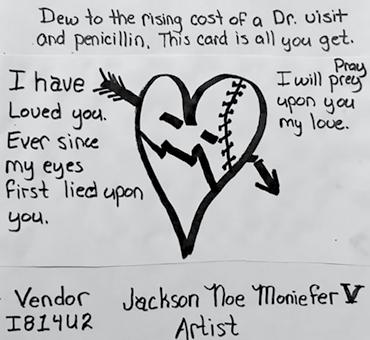 Dew to the rising cost of a Dr. visit
and penicillin. This card is all you get.
I have
Loved you.
Ever since
my eyes
first lied upon
you.
Pray
I will prey
upon you
my love.
Vendor
I814U2
Jackson Noe Moniefer V
Artist